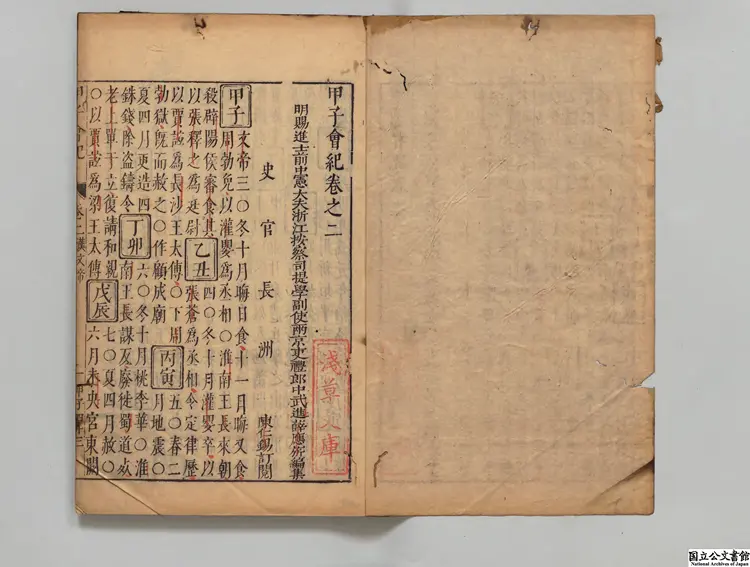 甲子會紀卷之二
明賜進士前中憲大夫浙江按察司提學副使兩京吏禮郎中武進薛應旂編集
史官長洲陳仁錫訂閱
甲子 文帝三〇冬十月晦日食十一月晦又食
周勃免以灌嬰爲丞相〇淮南王長來朝
殺辟陽侯審食其
以張釋之爲廷尉
乙丑 四〇冬十月灌嬰卒以
張蒼爲丞相令定律歷
以賈誼爲長沙王太傅〇下周
勃獄既而赦之〇作顧成廟
丙寅 五〇春二
月地震〇
夏四月更造四
銖錢除盜鑄令
丁卯 六〇冬十月桃李華〇淮
南王長謀反廢徙蜀道死
老上單于立復請和親
〇以賈誼爲梁王太傅
戊辰 七〇夏四月赦〇
六月未央宮東闕
甲子會紀
卷二漢文帝
一
淺草文庫
国立公文書館
National Archives of Japan